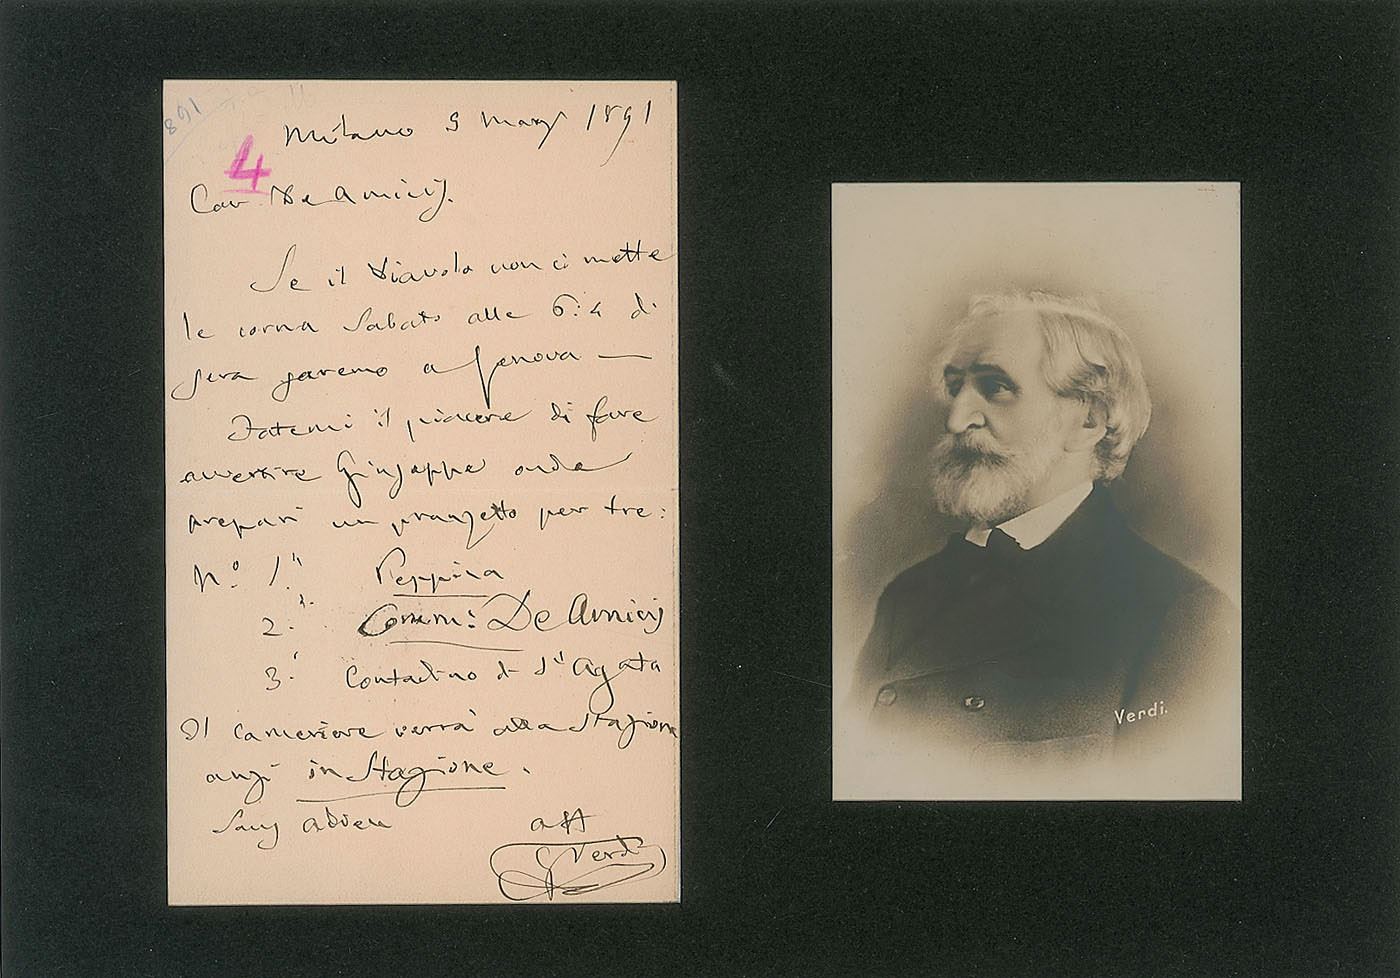 891
4
Milano 5 Marzo 1891
Cav De Amicis.
Se il diavolo non ci mette
le corna Sabato alle 6:4 di
sera saremo a Genova —
Fatemi il piacere di fare
avvertire Giuseppe onde
prepari un pranzetto per tre:
N.º 1.º Peppina
2.º Comm: De Amicis
3.º Contadino di St Agata
Il cameriere verrà alla Stazione
anzi in Stazione.
Sans adieu aff
G Verdi
Verdi.